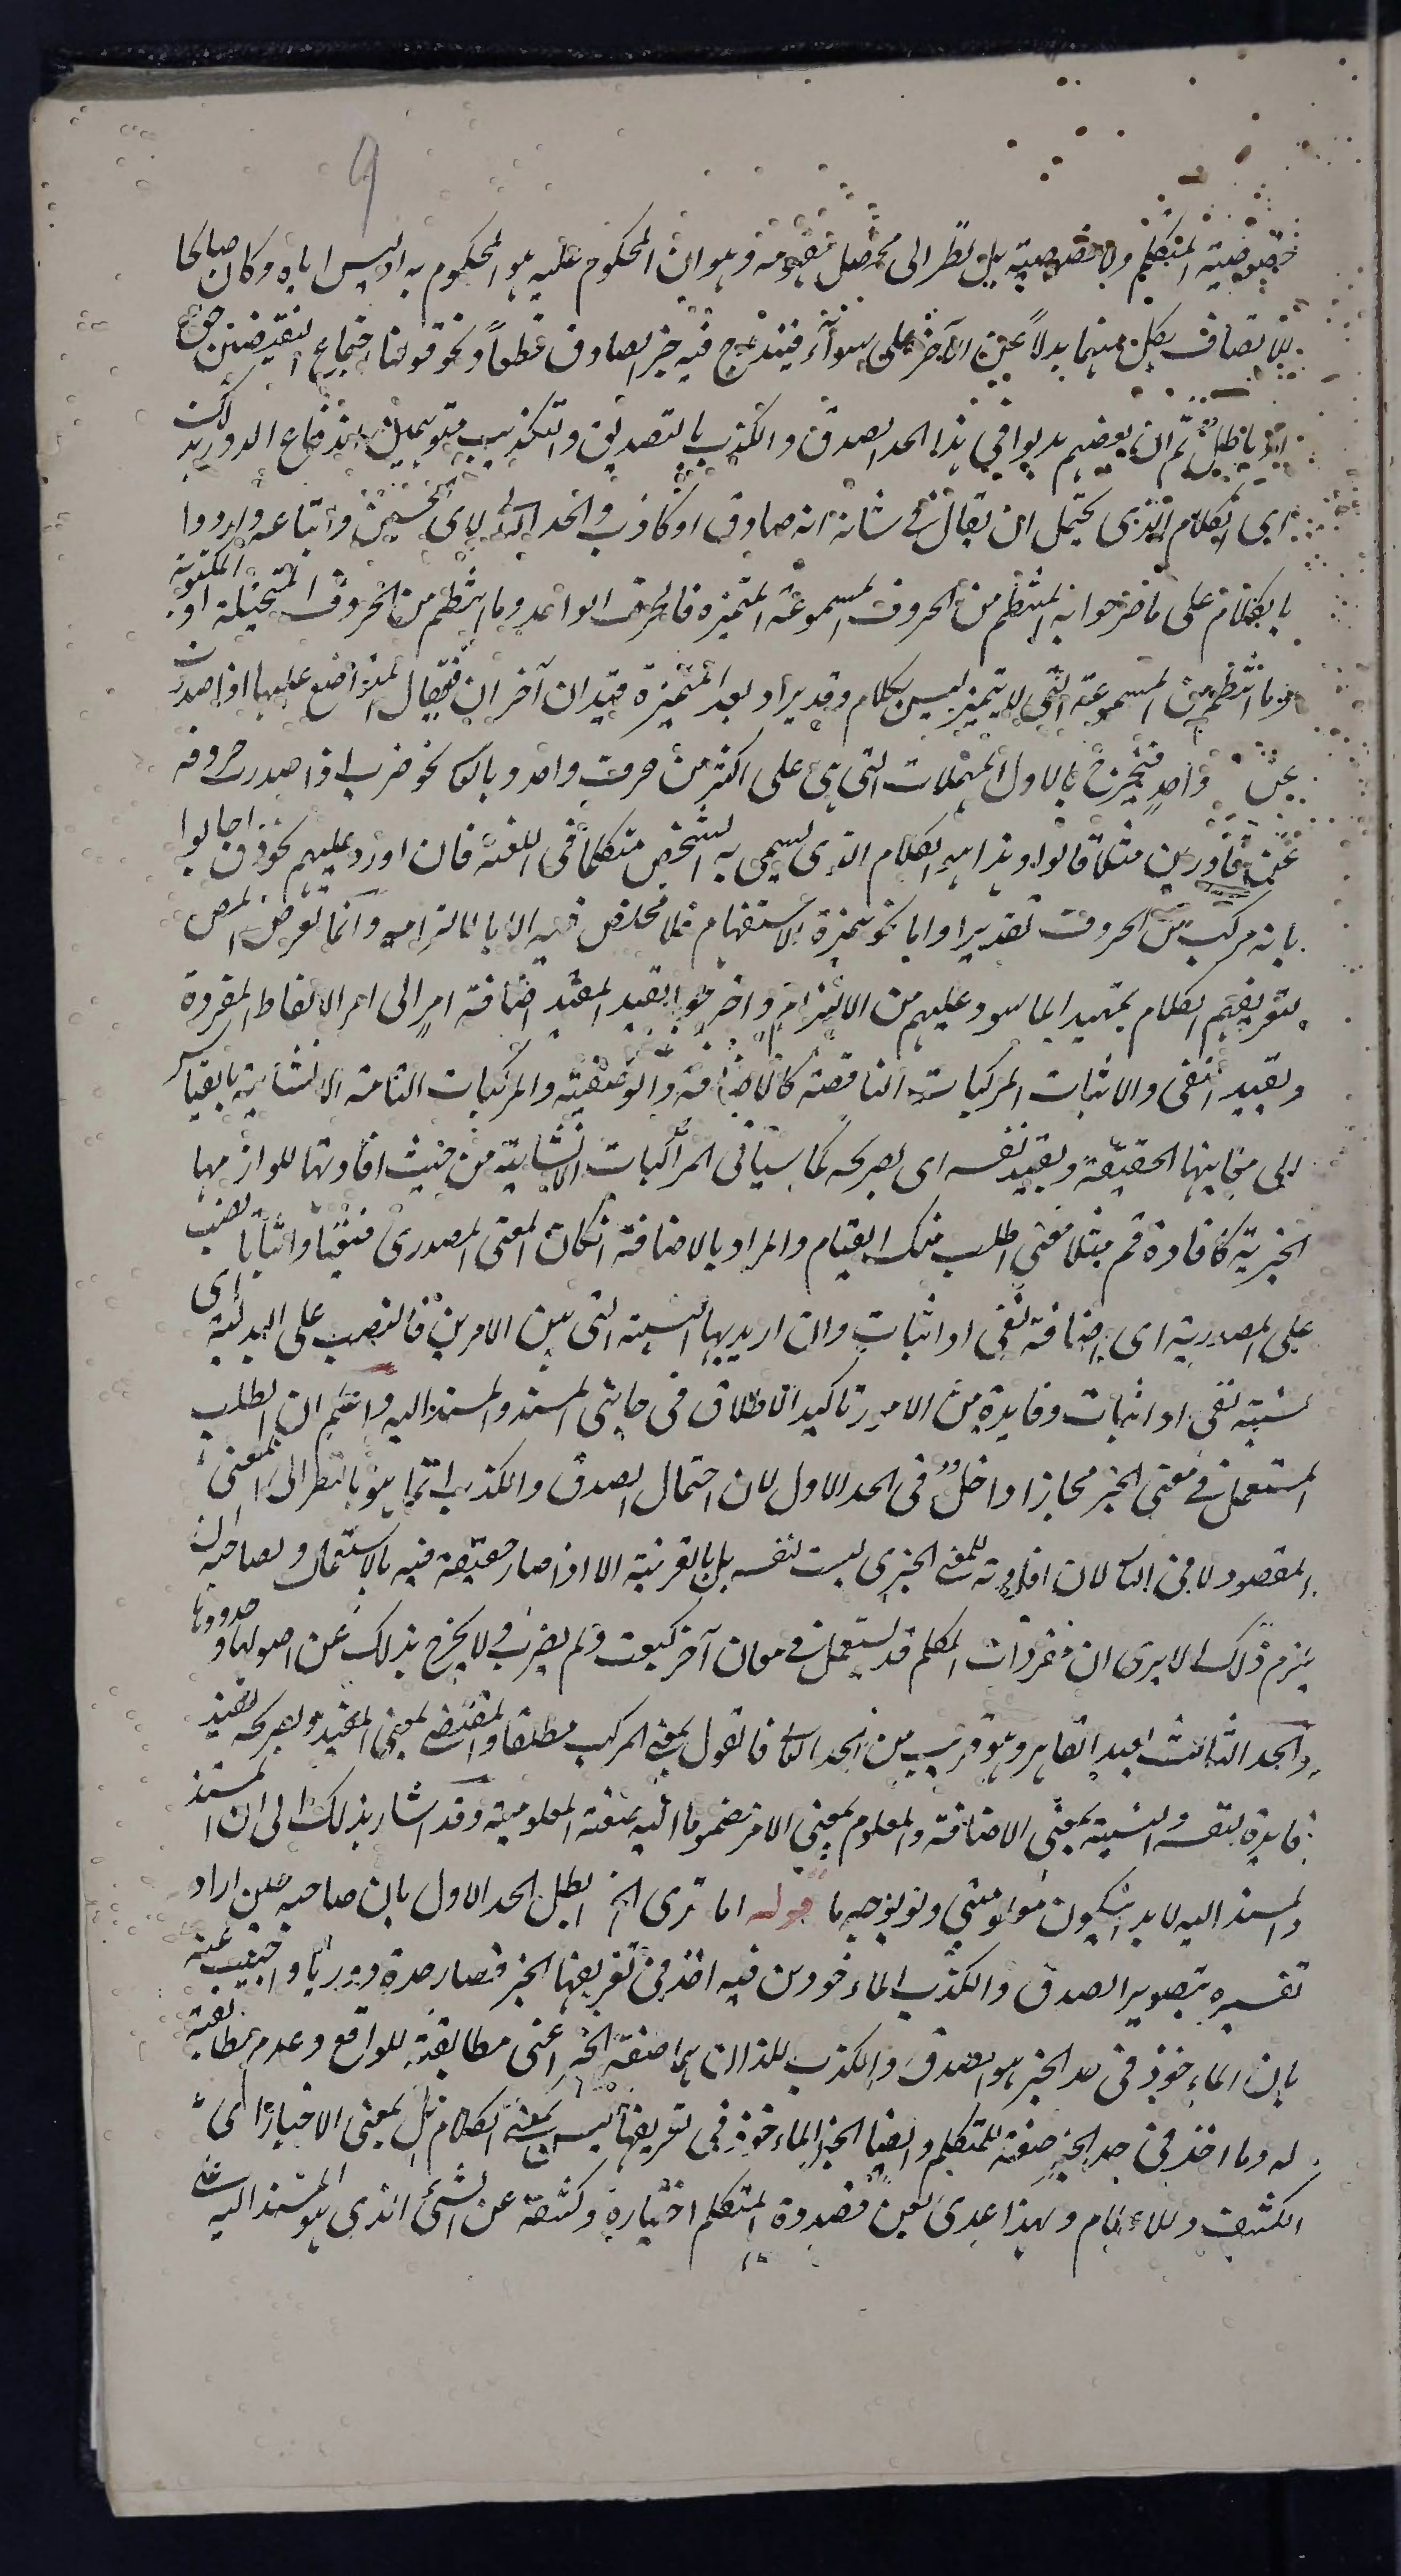 9
خصوصية المتكلم ولا خصوصية بل نظر الى محصل مفهومه وهو ان المحكوم عليه هو المحكوم به او ليس اياه وكان صالحا
للاتصاف بكل منهما بدلاً عن الآخر على سوآء فيندرج فيه خبر الصادق قطعاً ونحو قولنا اجتماع النقيضين حق
باطل ثم ان بعضهم بدلوا في هذا الحد الصدق والكذب بالتصديق والتكذيب متوهمين اندفاع الدور بذلك
اى الكلام الذى يحتمل ان يقال فى شانه انه صادق او كاذب والحد الثانى لابى الحسين واتباعه وارادوا
بالكلام على ما صرحوا به المنتظم من الحروف المسموعة المتميزة فالحرف الواحد وما انتظم من الحروف المتخيلة او المكتوبة
وما انتظم من المسموعة التى لا يتميز ليس بكلام وقد يزاد بعد المتميزة قيدان آخران فيقال المتواضع عليها اذا صدرت
عن واحد فيخرج بالاول المهملات التى هى على اكثر من حرف واحد وبالثانى نحو ضرب اذا صدرت حروفه
عن قادرين مثلا قالوا وهذا هو الكلام الذى يسمى به الشخص متكلما فى اللغة فان اورد عليهم نحو ق اجابوا
بانه مركب من الحروف تقديرا واما نحو همزة الاستفهام فلا مخلص فيه الا بالتزامه وانما تعرض المص
لتعريفهم الكلام تمهيدا لما سيورد عليهم من الالتزام واخرجوا بقيد المفيد اضافة امر الى امر الالفاظ المفردة
وبقيد النفى والاثبات المركبات الناقصة كالاضافة والوصفية والمركبات التامة الانشائية بالقياس
الى معانيها الحقيقة وبقيد بنفسه اى بصريحه كما سياتى المركبات الانشايية من حيث افادتها للوازمها
الخبرية كافادة قم مثلا معنى اطلب منك القيام والمراد بالاضافة انكان المعنى المصدرى فنفيا واثباتا نصب
على المصدرية اى اضافة نفى او اثبات وان اريد بها النسبة التى بين الامرين فالنصب على البدلية اى
نسبة نفى او اثبات وفايدة من الامور تاكيد الاطلاق فى جانبى المسند والمسند اليه واعلم ان الطلب
المستعمل فى معنى الخبر مجازا داخل فى الحد الاول لان احتمال الصدق والكذب انما هو بالنظر الى المعنى
المقصود لا فى الثانى لان افادته للمعنى الخبرى ليست لنفسه بل بالقرينة الا اذا صار حقيقة فيه بالاستعمال ولصاحبه ان
يلتزم ذلك الا يرى ان مفردات الكلم قد يستعمل فى معان آخر كبعت ولم يضرب ولا يخرج بذلك عن اصولها وحدودها
والحد الثالث لعبد القاهر وهو قريب من الحد الثانى فالقول بمعنى المركب مطلقا والمقتضى بمعنى المفيد وبصريحه يفيد
فايدة بنفسه والنسبة بمعنى الاضافة والمعلوم بمعنى الامر مضموما اليه صفة المعلومية وقد اشار بذلك الى ان المسند
والمسند اليه لا بد انيكون معلومين ولو بوجه ما قوله اما ترى الخ ابطل الحد الاول بان صاحبه حين اراد
تفسيره بتصوير الصدق والكذب الماءخوذين فيه اخذ فى تعريفها الخبر فصار حده دوريا واجيب عنه
بان الماءخوذ فى حد الخبر هو الصدق والكذب للذان هما صفة الخبر اعنى مطابقته للواقع وعدم مطابقته
له وما اخذ فى حد الخبر صفة للمتكلم وايضا الخبر الماءخوذ فى تعريفها ليس بمعنى الكلام بل بمعنى الاخبار اى
الكشف وللاعلام ولهذا عدى بعن فصدق المتكلم اخباره وكشفه عن الشئ الذى هو المسند اليه على